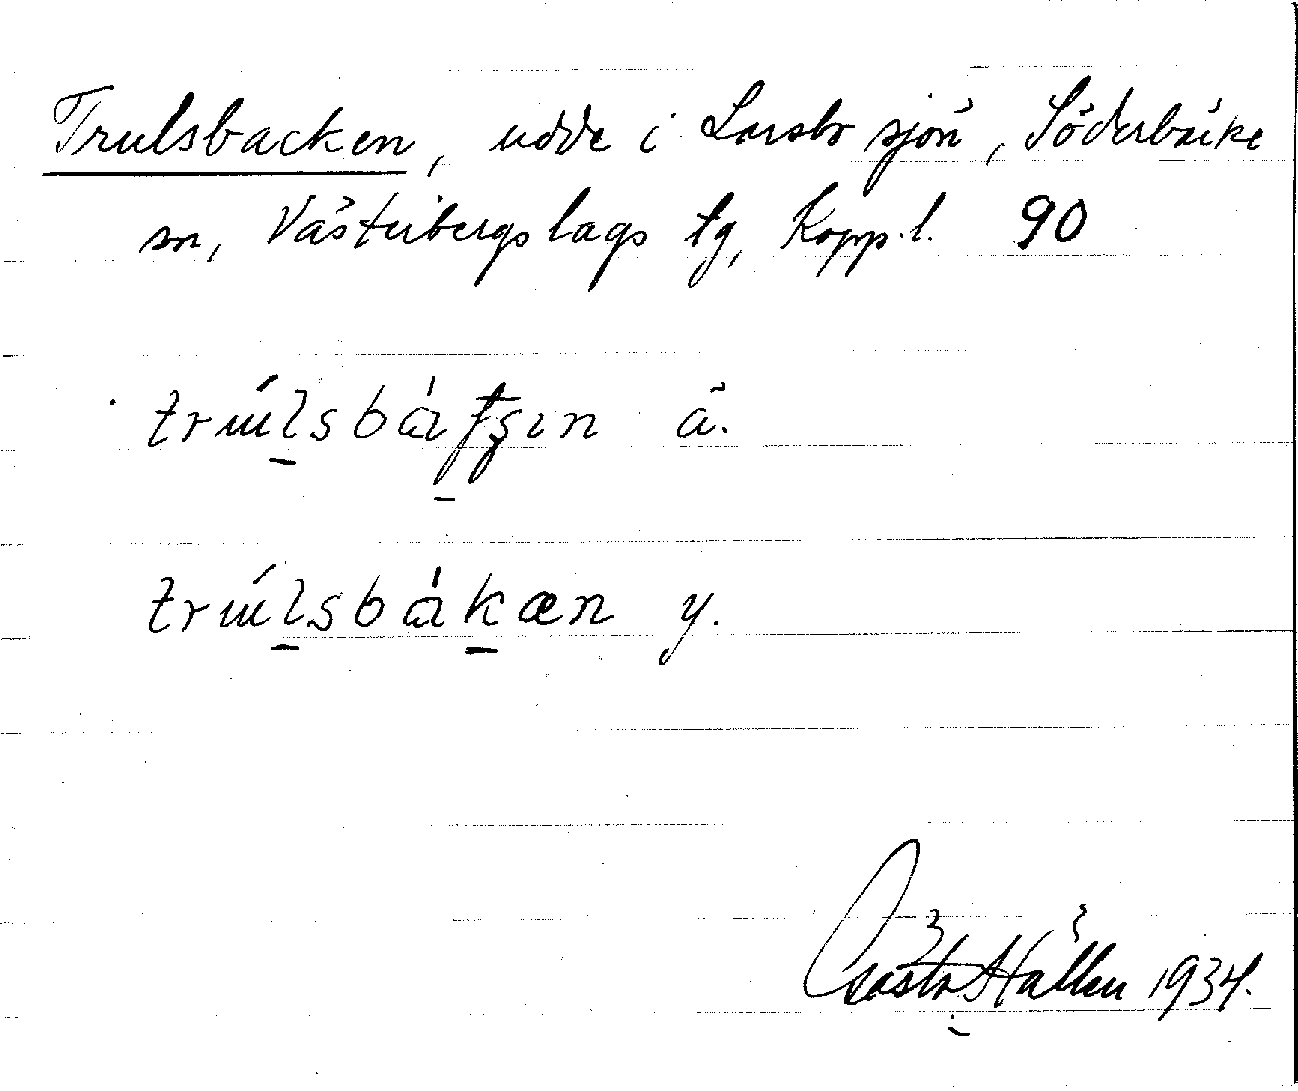 Trulsbacken, udde i Larsbo sjön, Söderbärke
sn, Västerbergslags tg, Kopp.l. 90
trúlsbátʂın ä.
trúlsbákæn y.
Gösta Hållen 1934.